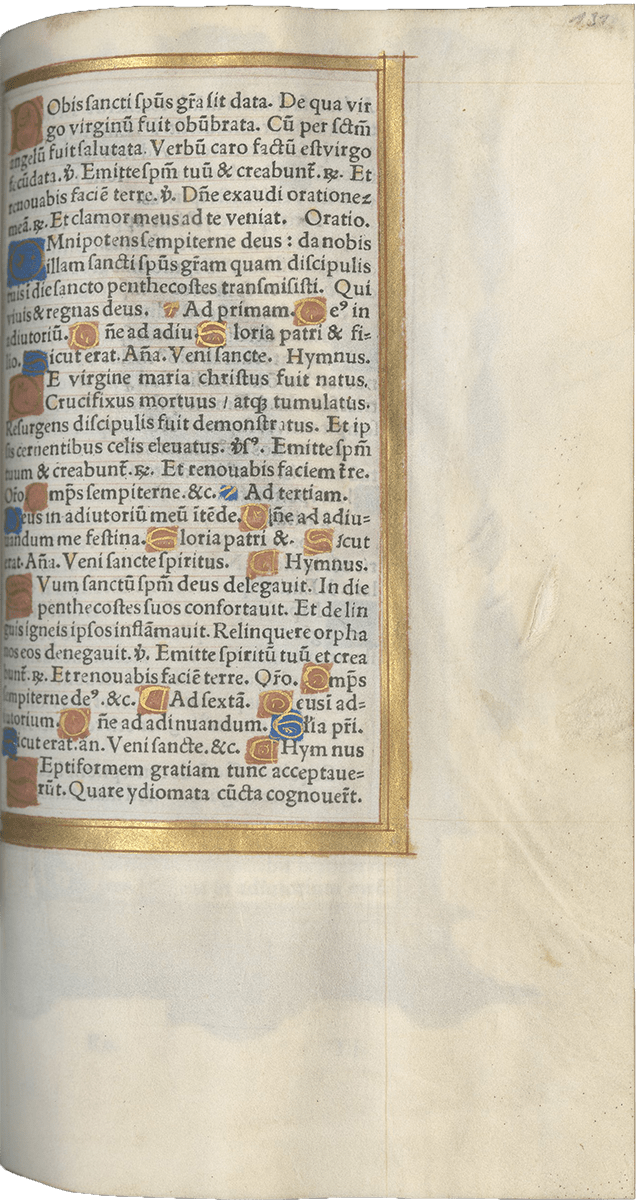 131
NObis sancti sp̄us gr̄a sit data. De qua vir
go virginū fuit obūbrata. Cū per sctm̄
angelū fuit salutata. Verbū caro factū est virgo
fecūdata. ℣. Emitte sp̄m tuū & creabunt̄. ℟. Et
renouabis faciē terre. ℣. Dn̄e exaudi orationez
meā. ℟. Et clamor meus ad te veniat. Oratio.
OMnipotens sempiterne deus : da nobis
illam sancti sp̄us gr̄am quam discipulis
tuis i die sancto penthecostes transmisisti. Qui
viuis & regnas deus. Ad primam. De⁹ in
adiutoriū. Dn̄e ad adiu. Gloria patri & fi-
lio. Sicut erat. Añа. Veni sancte. Hymnus.
DE virgine maria christus fuit natus.
Crucifixus mortuus / atqꝫ tumulatus.
Resurgens discipulis fuit demonstratus. Et ip
sis cernentibus celis eleuatus. ℣s⁹. Emitte sp̄m
tuum & creabunt̄. ℟. Et renouabis faciem t̄re.
Or̄o. Omp̄s sempiterne. &c. Ad tertiam.
Deus in adiutoriū meū ītēde. Dn̄e ad adiu=
uandum me festina. Gloria patri &. Sicut
erat. Añа. Veni sancte spiritus. Hymnus.
SVum sanctū sp̄m deus delegauit. In die
penthecostes suos confortauit. Et de lin
guis igneis ipsos inflāmauit. Relinquere orpha
nos eos denegauit. ℣. Emitte spiritū tuū et crea
bunt̄. ℟. Et renouabis faciē terre. Or̄o. Omp̄s
sempiterne de⁹. &c. Ad sextā. Deus ī ad=
iutorium. Dn̄e ad adinuandum. Gl̄ia pr̄i.
Sicut erat. an. Veni sancte. &c. Hymnus
SEptiformem gratiam tunc acceptaue=
rūt. Quare ydiomata cūcta cognouer̄t.